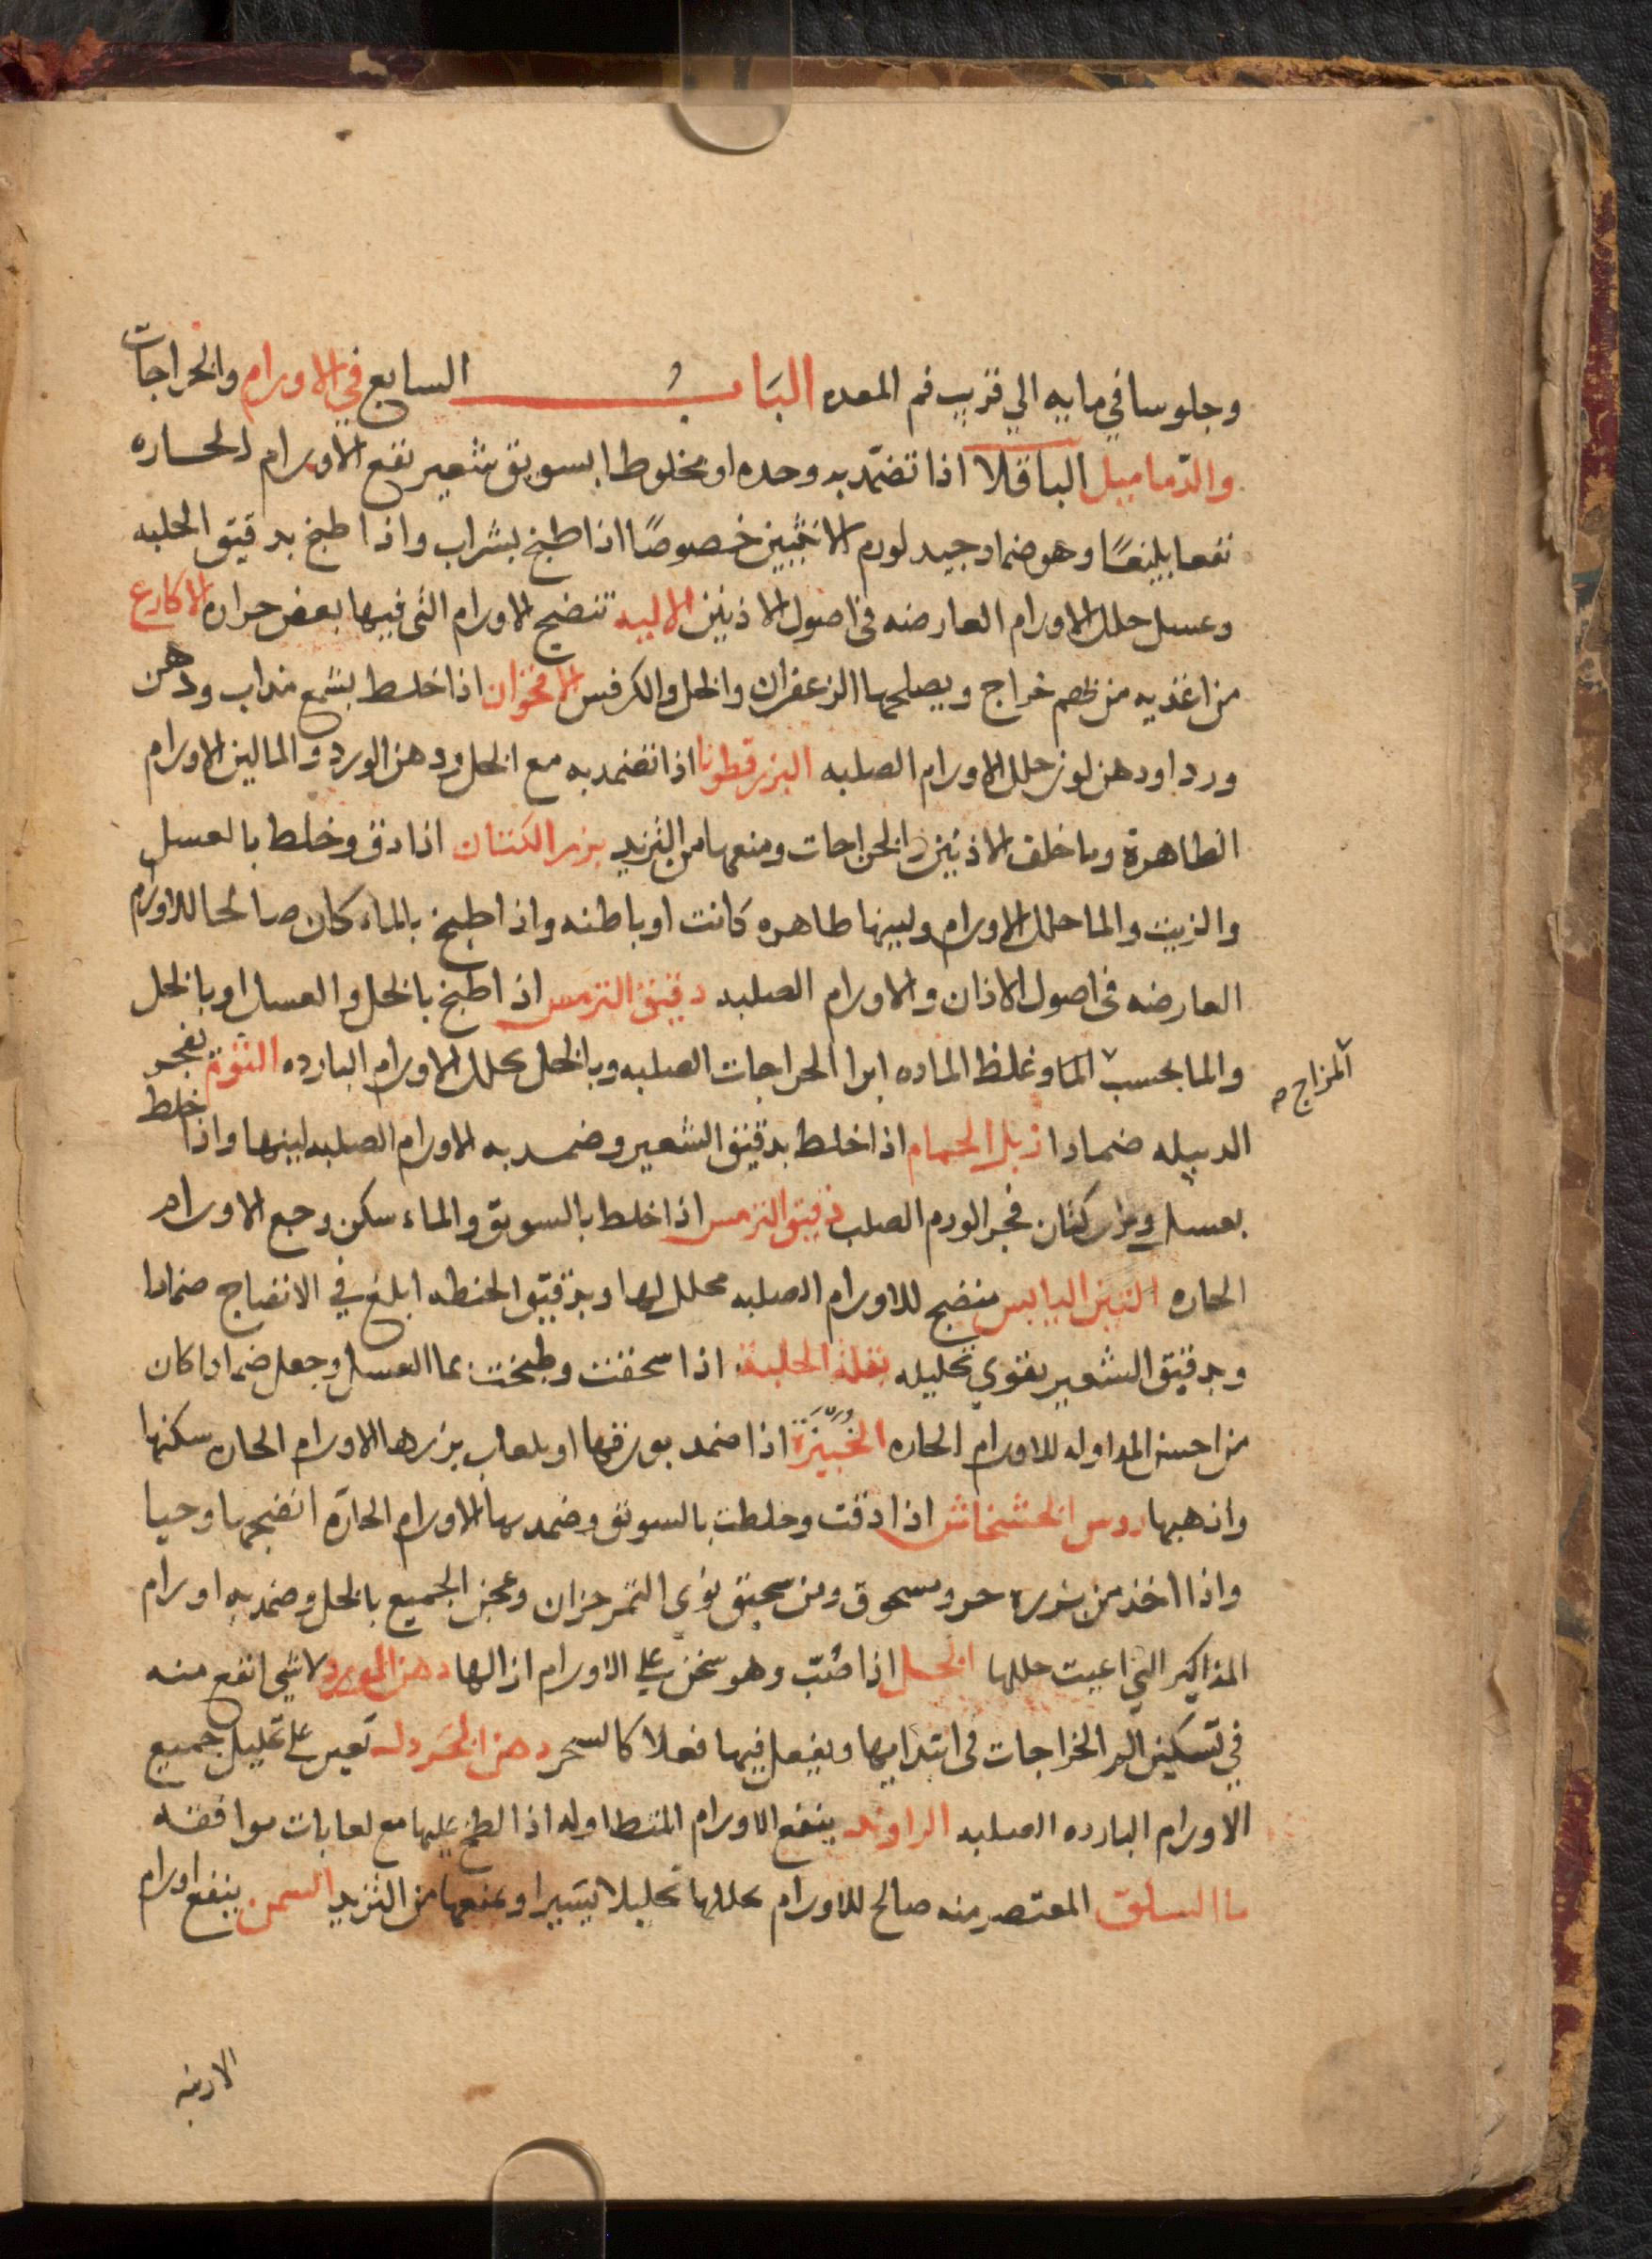 وجلوسا في مايه الي قريب فم المعده البَابُ السابع في الاورام والخراجات
والدّماميل الباقلا اذا تضمّد به وحده او مخلوطا بسويق شعير نفع الاورام الحاره
نفعا بليغًا وهو ضماد جيد لورم الانثيين خصوصًا اذا طبخ بشراب واذا طبخ بدقيق الحلبه
وعسل حلل الاورام العارضه فى اصول الاذنين الاليه تنضج الاورام التى فيها بعض حراره الاكارع
من اغذيه من بهم خراج ويصلحها الزعفران والخل والكرفس الاقحوان اذا خلط بشمع مذاب ودهن
ورد او دهن لوز حلل الاورام الصلبه البزرقطونا اذا تضمد به مع الخل ودهن الورد والما لين الاورام
الظاهرة وما خلف الاذنين والخراجات ومنعها من التزيد بزر الكتان اذا دق وخلط بالعسل
والزيت والما حلل الاورام ولينها ظاهره كانت او باطنه واذا طبخ بالماء كان صالحا للاورام
العارضه فى اصول الاذان والاورام الصلبه دقيق الترمس اذا طبخ بالخل والعسل او بالخل
والما بحسب الما وغلظ الماده ابرا الخراجات الصلبه وبالخل يحلل الاورام البارده الثوم يفجر
المزاج صح
الدبيله ضمادا زبل الحمام اذا خلط بدقيق الشعير وضمد به الاورام الصلبه لينها واذا خلط
بعسل وبزر كتان فجر الورم الصلب دقيق الترمس اذا خلط بالسويق والماء سكن وجع الاورام
الحاره التين اليابس منضج للاورام الصلبه محلل لها وبدقيق الحنطه ابلغ في الانضاج ضمادا
وبدقيق الشعير يقوي تحليله بقلة الحلبة اذا سحقت وطبخت بما العسل وجعل ضمادا كان
من احسن المداوله للاورام الحاره الخُبَّيْزَة اذا ضمد بورقها او بلعاب بزرها الاورام الحاره سكنها
واذهبها روس الخشخاش اذا دقت وخلطت بالسويق وضمد بها الاورام الحارّه انضجها وحيا
واذا اخذ من بزره جزو مسحوق ومن سحيق نوى التمر جزان وعجن الجميع بالخل وضمد به اورام
المذاكير التي اعيت حللها الخل اذا صُبّ وهو سخن على الاورام ازالها دهن الورد لا شي انفع منه
في تسكين الم الخراجات فى ابتدايها ويفعل فيها فعلا كالسحر دهن الخردل يعين على تحليل جميع
الاورام البارده الصلبه الراوند ينفع الاورام المتطاوله اذا لطخ عليها مع لعابات موافقه
ما السلق المعتصر منه صالح للاورام يحللها تحليلا يسيرا ويمنعها من التزيد السمن ينفع اورام
الارنبه